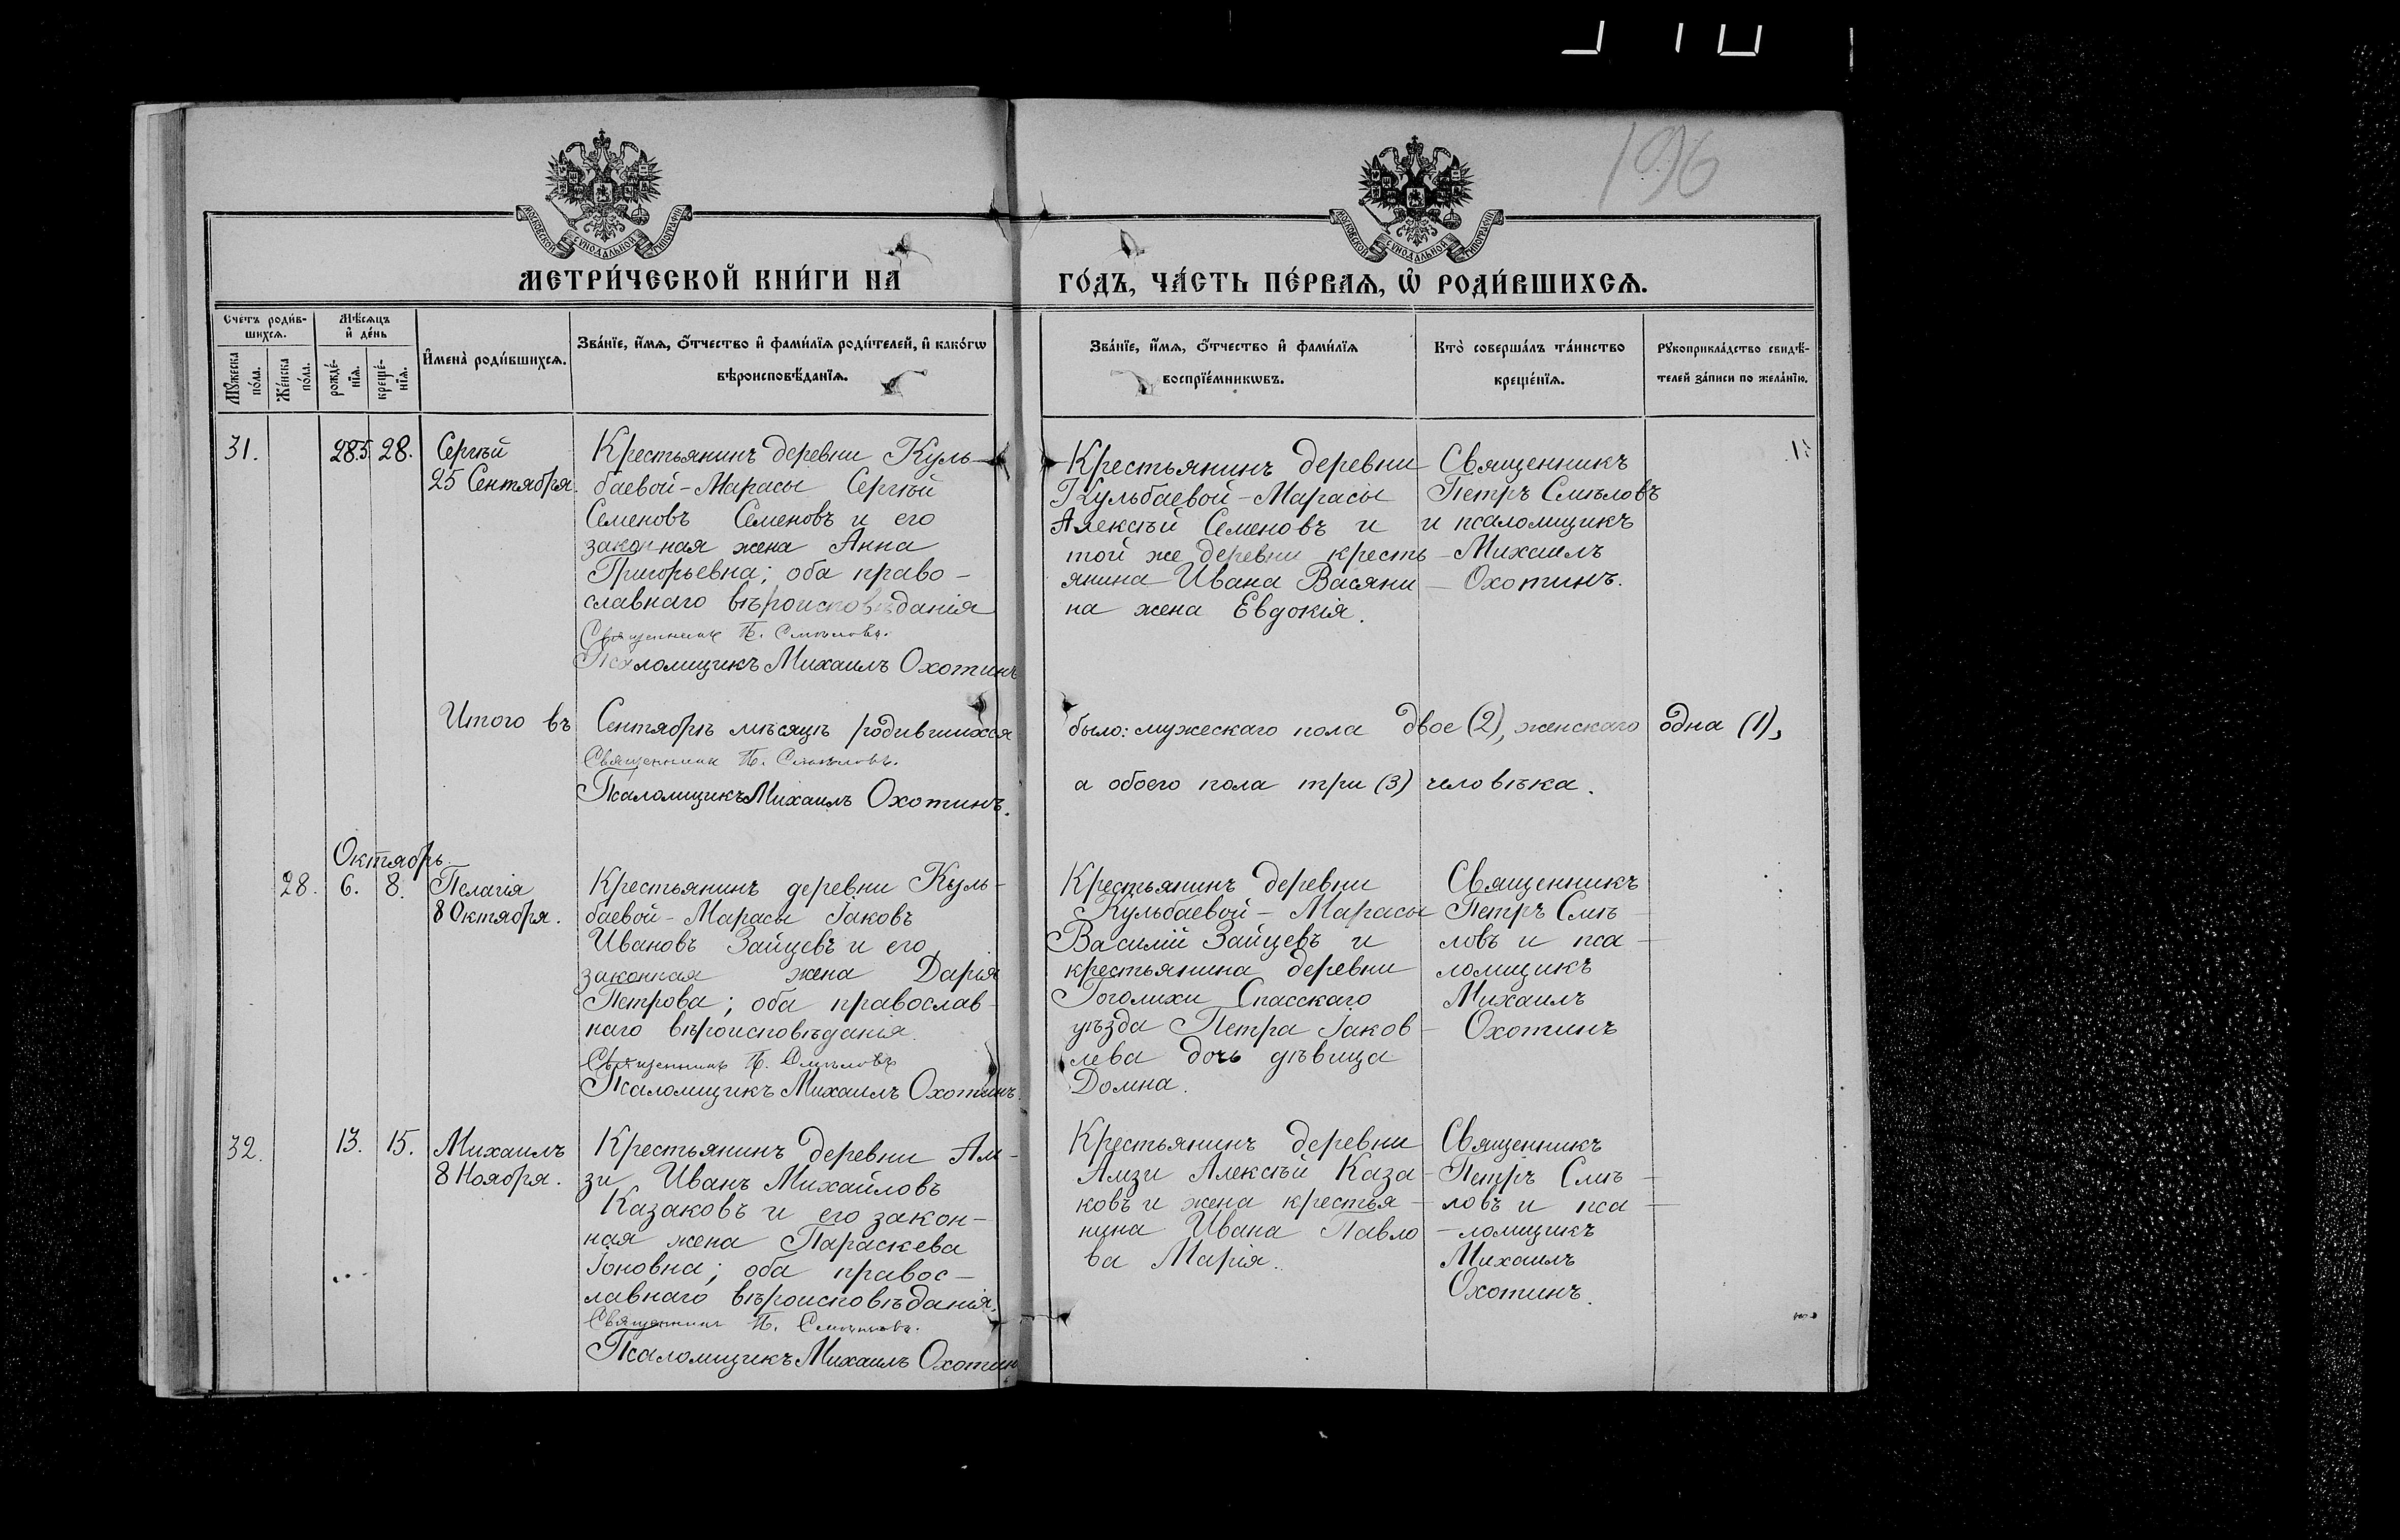 196
МОСКОВСКОЙ СУНОДАЛЬНОЙ ТИПОГРАФІИ
МОСКОВСКОЙ СУНОДАЛЬНОЙ ТИПОГРАФІИ
МЕТРИ́ЧЕСКОЙ КНИ́ГИ НА
ГО́ДЪ, ЧА́СТЬ ПЕ́РВАѦ, Ѡ҆ РОДИ́ВШИХСѦ.
Сче́тъ роди́в-
шихсѧ.
Мꙋ́жеска
по́ла.
Же́нска
по́ла.
Мѣ́сѧцъ
и҆ де́нь
рожде́-
нїѧ.
креще́-
нїѧ.
И҆мена̀ роди́вшихсѧ.
Зва́нїе, и҆́мѧ, ѻ҆́тчество и҆ фами́лїѧ роди́телей, и҆ како́гѡ
вѣроисповѣ́данїѧ.
Зва́нїе, и҆́мѧ, ѻ҆́тчество и҆ фами́лїѧ
воспрїе́мникѡвъ.
Кто̀ соверша́лъ та́инство
креще́нїѧ.
Рꙋкоприкла́дство свидѣ́-
телей за́писи по жела́нїю.
31.
28.
Сергѣй
25 Сентября.
Крестьянинъ деревни Куль-
баевой-Марасы Сергѣй
Семеновъ Семеновъ и его
законная жена Анна
Григорьевна; оба право-
славнаго вѣроисповѣданія
Священникъ П. Смѣловъ.
Псаломщикъ Михаилъ Охотинъ
Крестьянинъ деревни
Кульбаевой-Марасы
Алексѣй Семеновъ и
той же деревни кресть-
янина Ивана Васяни-
на жена Евдокія.
Священникъ
Петръ Смѣловъ
и псаломщикъ
Михаилъ
Охотинъ.
Итого въ Сентябрѣ мѣсяцѣ родившихся было: мужескаго пола двое (2), женскаго одна (1),
Священникъ П. Смѣловъ.
Псаломщикъ Михаилъ Охотинъ.
а обоего пола три (3) человѣка.
Октябрь.
28. 6. 8.
Пелагія
8 Октября.
Крестьянинъ деревни Куль-
баевой-Марасы Іаковъ
Ивановъ Зайцевъ и его
законная жена Дарія
Петрова; оба православ-
наго вѣроисповѣданія.
Священникъ П. Смѣловъ
Псаломщикъ Михаилъ Охотинъ.
Крестьянинъ деревни
Кульбаевой-Марасы
Василій Зайцевъ и
крестьянина деревни
Гоголихи Спасскаго
уѣзда Петра Іаков-
лева дочь дѣвица
Домна.
Священникъ
Петръ Смѣ-
ловъ и пса-
ломщикъ
Михаилъ
Охотинъ
32. 13. 15.
Михаилъ
8 Ноября.
Крестьянинъ деревни Ам-
зи Иванъ Михайловъ
Казаковъ и его закон-
ная жена Параскева
Іоновна; оба правос-
лавнаго вѣроисповѣданія.
Священникъ П. Смѣловъ.
Псаломщикъ Михаилъ Охотин
Крестьянинъ деревни
Амзи Алексѣй Каза-
ковъ и жена крестья-
нина Ивана Павло-
ва Марія.
Священникъ
Петръ Смѣ-
ловъ и пса-
ломщикъ
Михаилъ
Охотинъ.